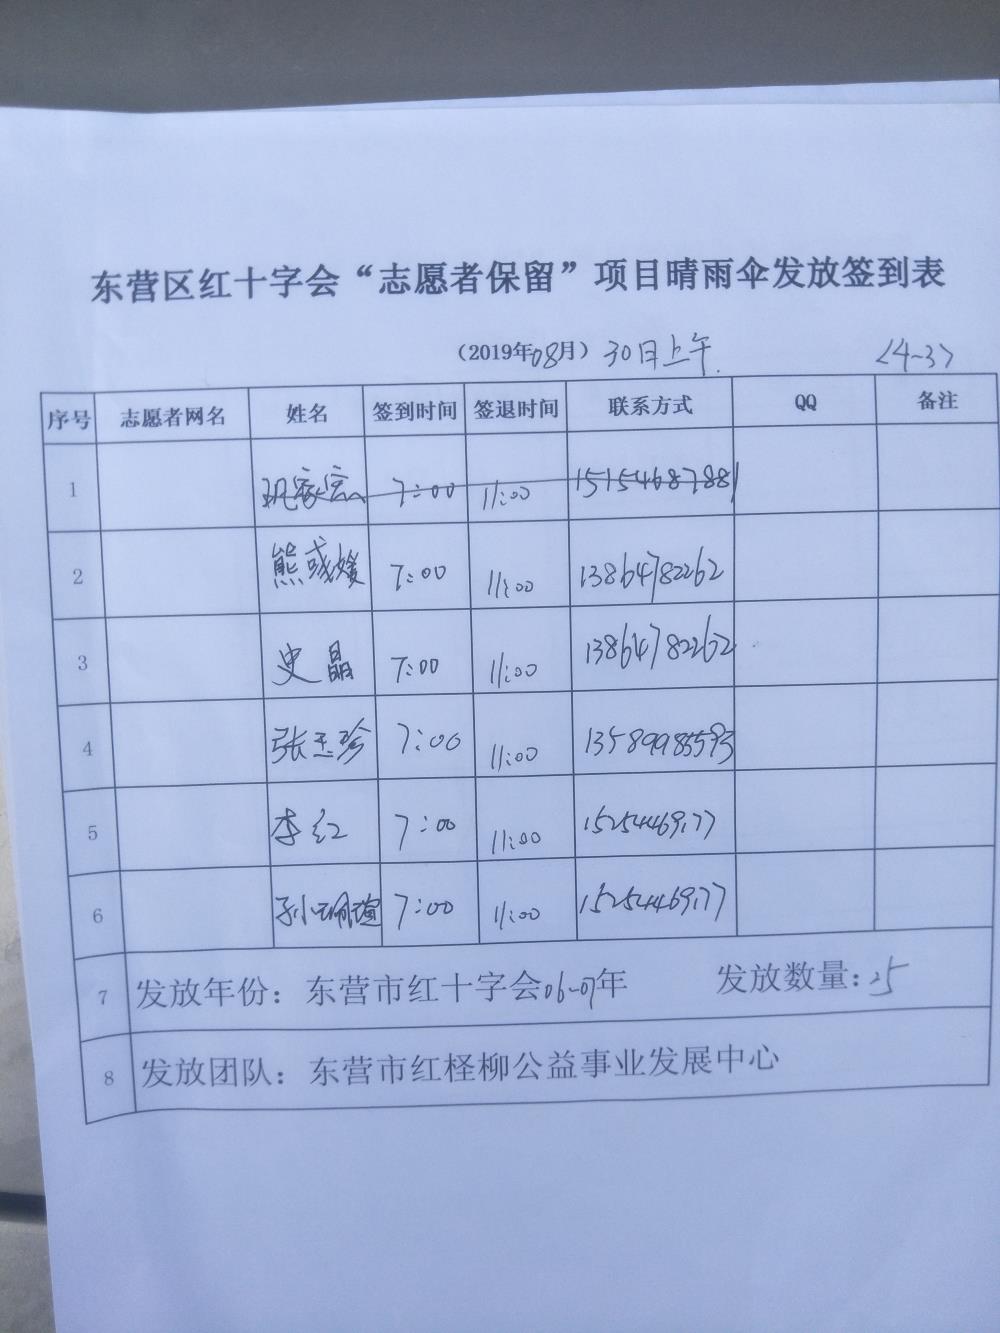 东营区红十字会“志愿者保留”项目晴雨伞发放签到表
（2019年08月）30日上午. <4-3>
序号 志愿者网名 姓名 签到时间 签退时间 联系方式 QQ 备注
1 家宏 7:00 11:00 15154687881
2 熊彧媛 7:00 11:00 13864782262
3 史晶 7:00 11:00 13864782262
4 张玉珍 7:00 11:00 13589985593
5 李红 7:00 11:00 15254469177
6 孙珮瑄 7:00 11:00 15254469177
7 发放年份：东营市红十字会06-07年 发放数量：25
8 发放团队：东营市红柽柳公益事业发展中心